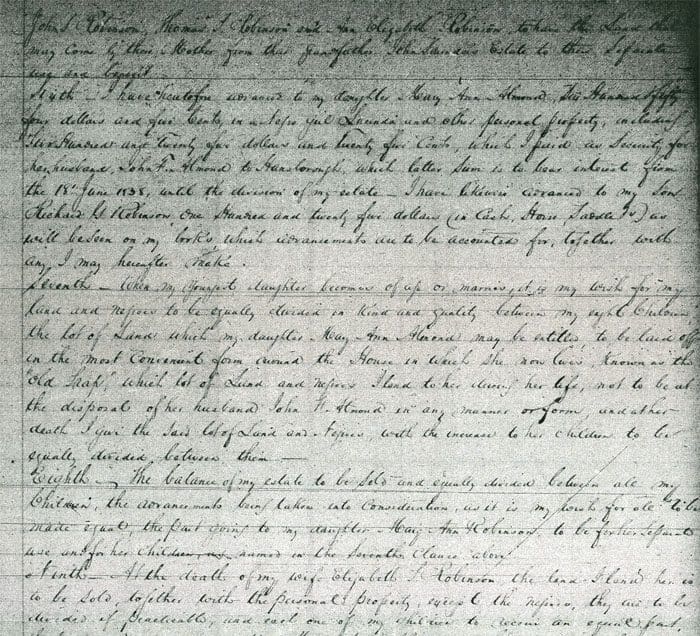 John S Robinson, Thomas S Robinson and Ann Elizabeth Robinson, to have the Land that
may come by their Mother from their grandfather John Saunders Estate to their Separate
use and benefit
Sixth – I have heretofore advanced to my daughter Mary Ann Almond, Six Hundred fifty
four dollars and five Cents, in a Negro girl Lucinda and other personal property, including
Hundred and twenty five dollars and twenty five Cents, which I paid as Security for
her husband, John F. Almond to Hansborough, which latter Sum is to bear interest from
the 18th June 1838, until the division of my estate – I have likewise advanced to my Son
Richard Robinson One Hundred and twenty five dollars (in Cash, Horse Saddle &c) as
will be seen on my books which advancements are to be accounted for, together with
any I may hereafter make.
Seventh – When my youngest daughter becomes of age or marries, it is my wish for my
land and negroes to be equally divided in Kind and quality between my eight Children
the lot of Land which my daughter Mary Ann Almond may be entitled, to be laid off
in the most Convenient form around the House in which she now lives, Known as the
"Old ", which lot of Land and negroes I land to her during her life, not to be at
the disposal of her husband John F. Almond in any manner or form, and at her
death I give the said lot of Land and Negroes, with the increase to her Children to be
equally divided between them –
Eighth – The balance of my estate to be Sold and equally divided between all my
Children, the advancements being taken into Consideration, as it is my wish for all to be
made equal, the part going to my daughter Mary Ann Robinson, to be for her Separate
use and for her Children, named in the Seventh Clause above
Ninth – At the death of my wife Elizabeth S Robinson the land I land her is
to be Sold together with the personal property, except the negroes, they are to be
divided if practicable, and each one of my children to receive an equal part,